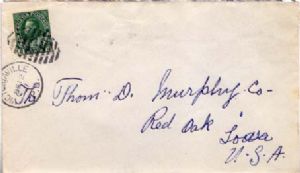 Thom. D. Murphy Co-
Red Oak Iowa
U.S.A.